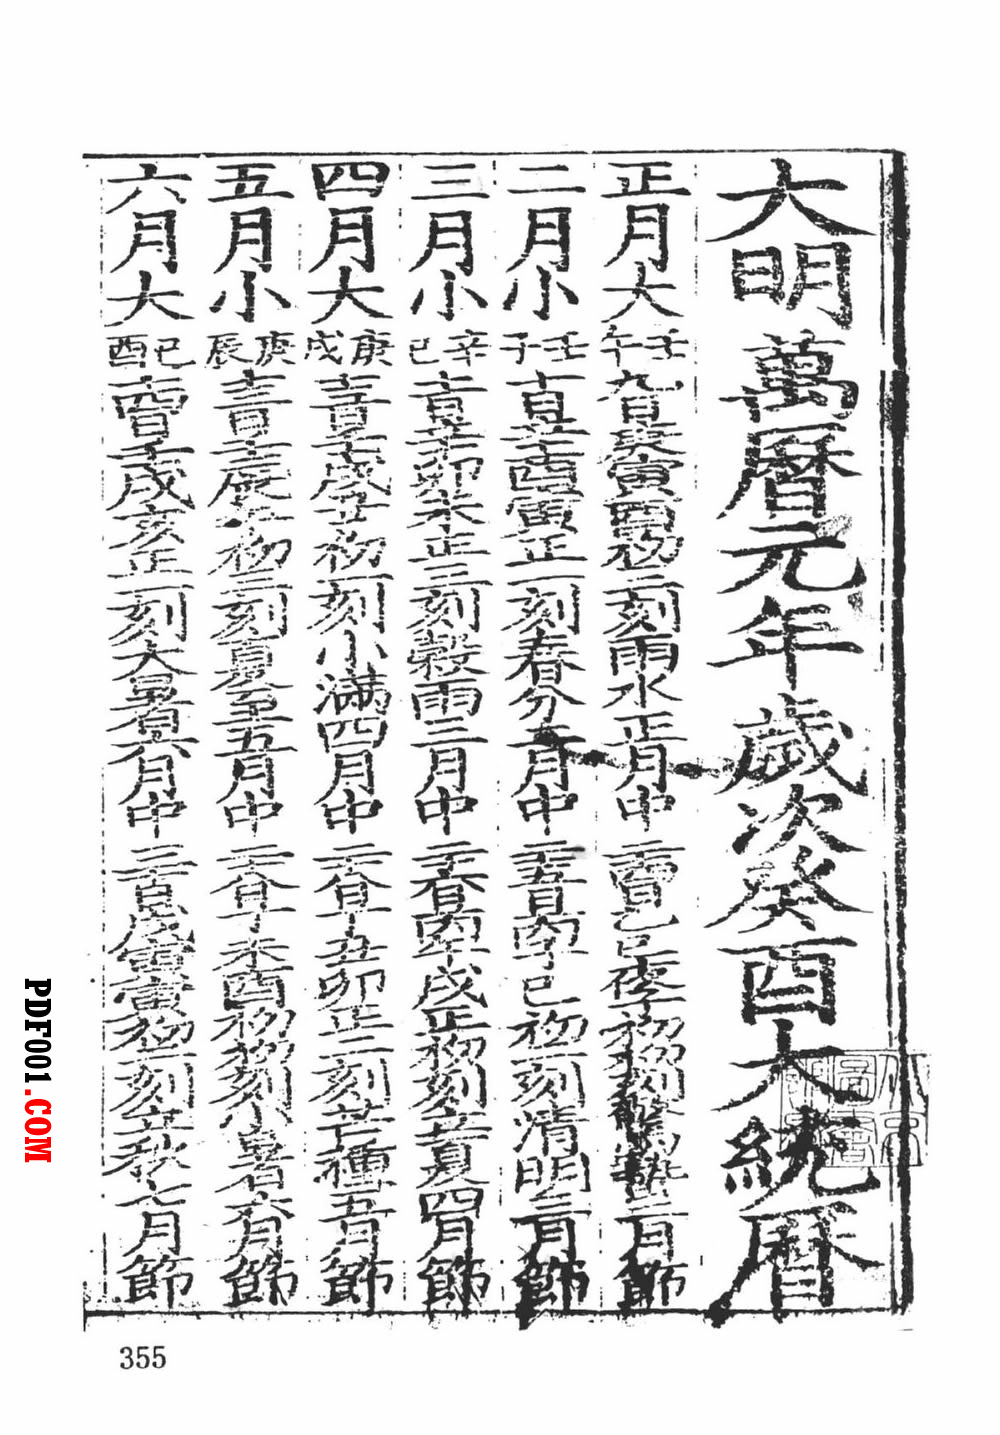 大明萬曆元年歲次癸酉大統曆
正月大 壬午 九日庚寅酉初二刻雨水正月中 二十四日乙巳夜子初初刻驚蟄二月節
二月小 壬子 十日辛酉寅正一刻春分二月中 二十五日丙子巳初一刻清明三月節
三月小 辛巳 十一日辛卯未正三刻穀雨三月中 二十六日丙午戌正初刻立夏四月節
四月大 庚戌 十三日壬戌丑初一刻小滿四月中 二十八日丁丑卯正二刻芒種五月節
五月小 庚辰 十三日壬辰午初三刻夏至五月中 二十八日丁未酉初初刻小暑六月節
六月大 己酉 十四日壬戌亥正一刻大暑六月中 三十日戊寅寅初一刻立秋七月節
355
PDF001.COM